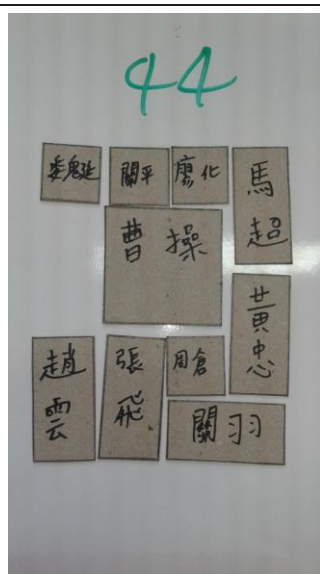 44
魏延 關平 廖化 馬超
曹操
黃忠
趙雲 張飛 周倉
關羽